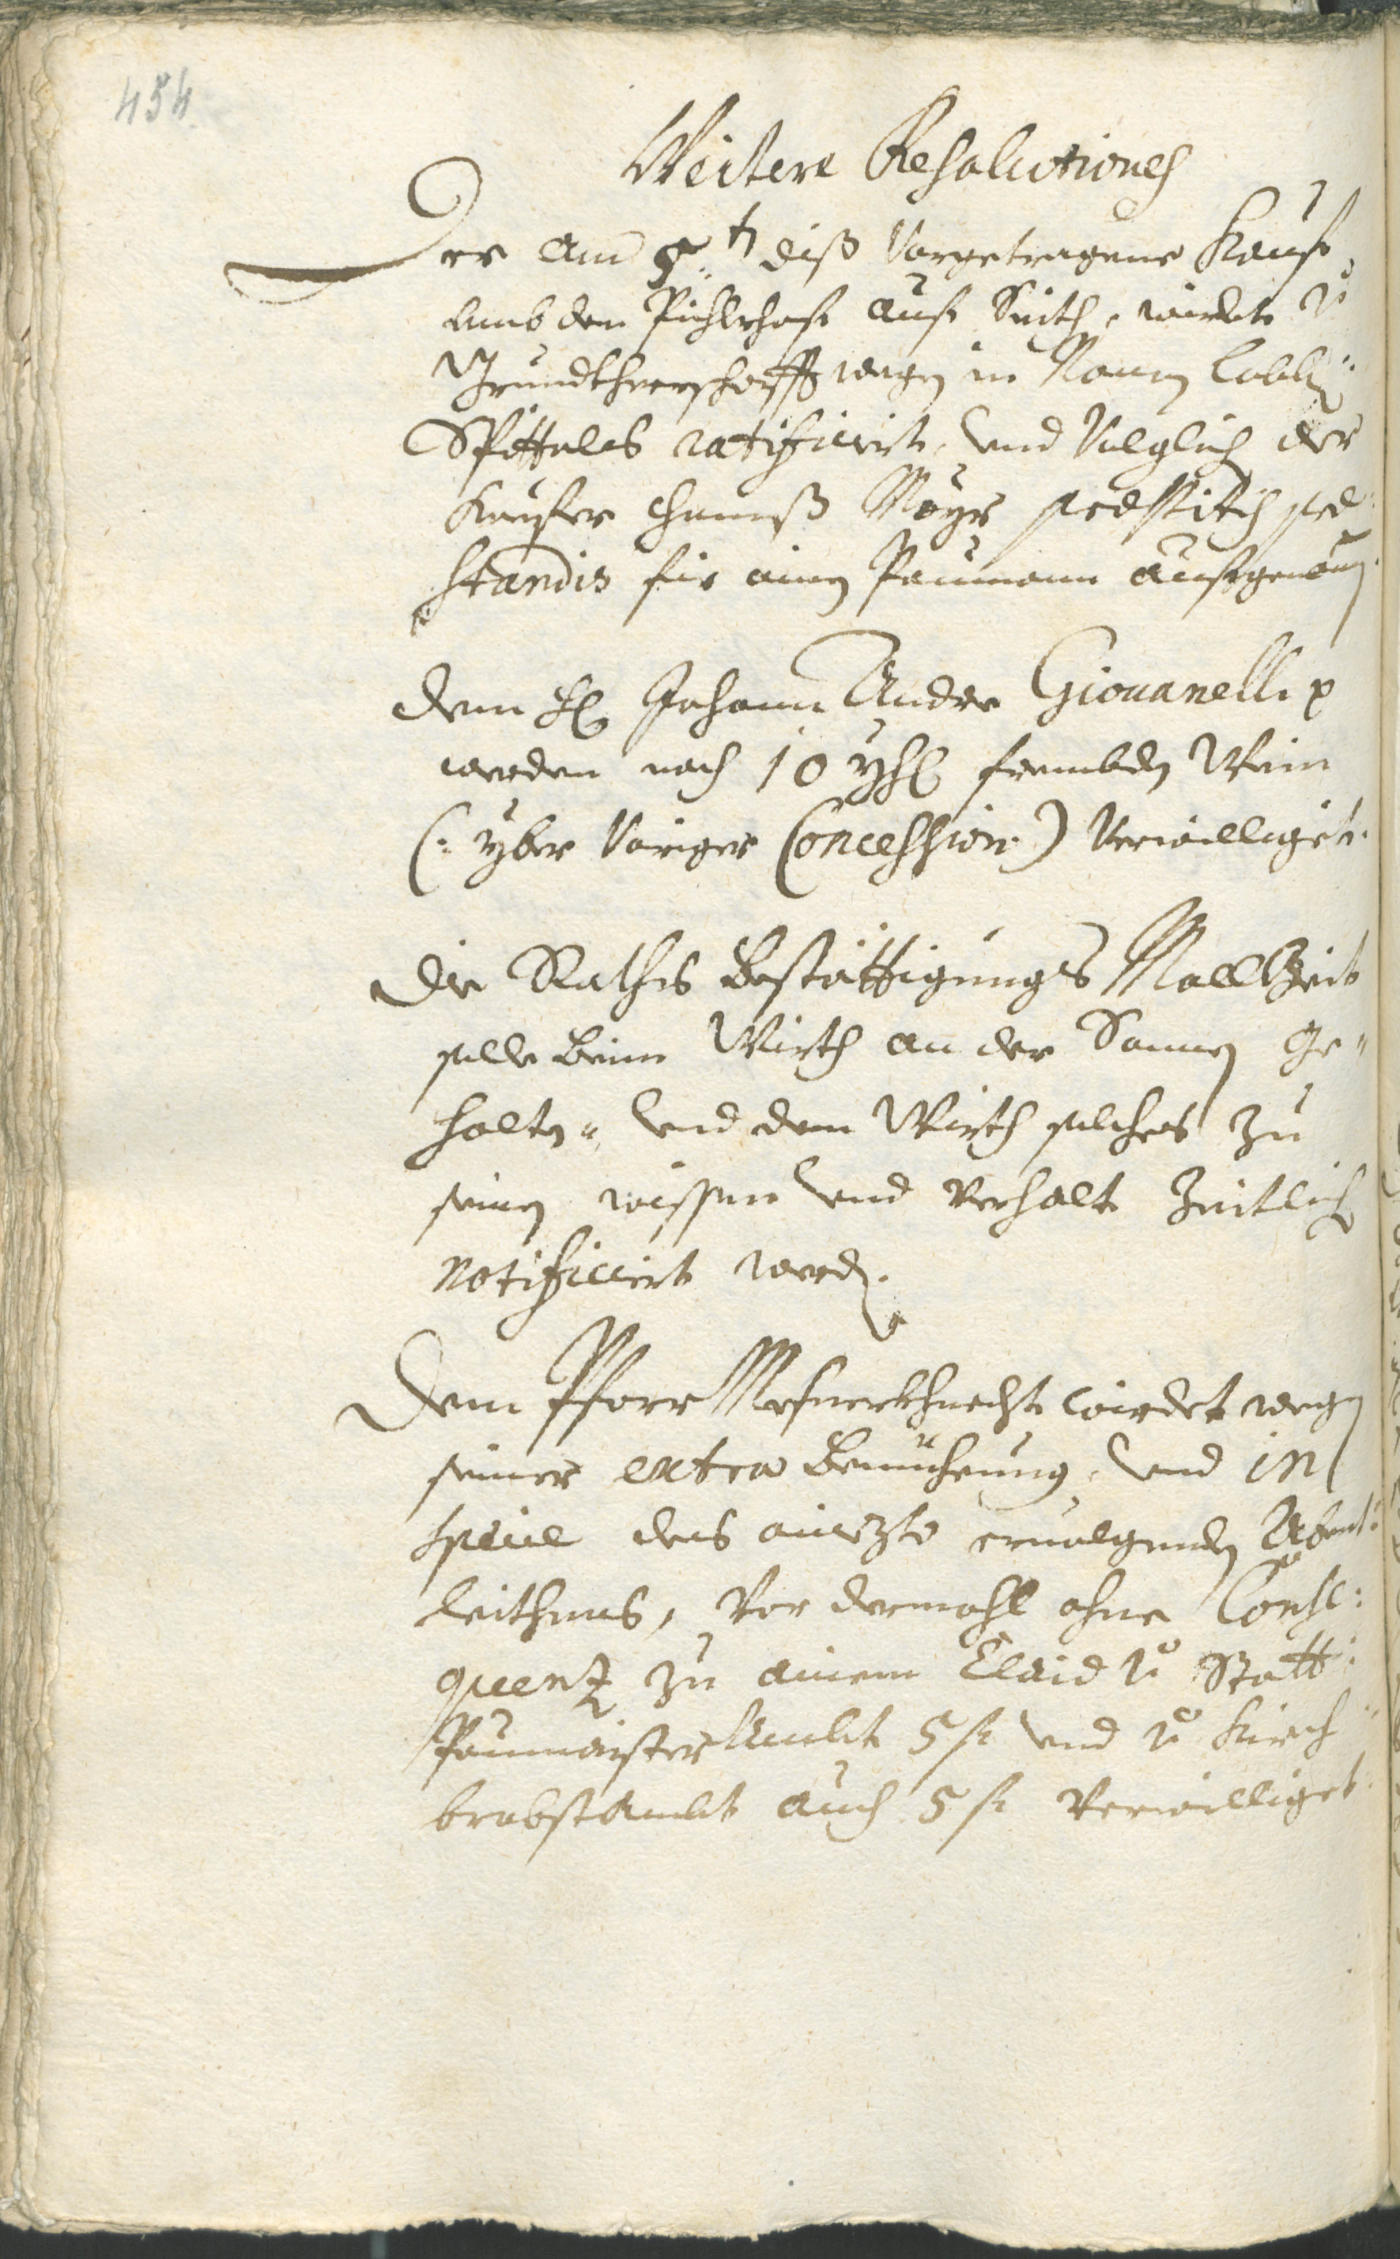 454
Weitere Resolutiones
Der am 5.ten diß Vorgetragene Kauf,
umb den Pichlerhof auf Seith, wirdet v̊
Grundtherrschafft wegen in Namen Lobl:
Spittales ratificiert, und Volglich der
Kaufer Hannß Mayr praestitis prae
standis für ainen Paumann aufgenomen.
Dem H: Johann Andre Giouanelli p
werden noch 10 Yhr: frembden Wein
(: yber Voriger Concession :) Verwilliget.
Die Raths Bestättigungs Mallzeit
solle beim Wirth an der Sonnen ge-
halten, und dem Wirth solches zu
seinen wissen und Verhalt Zeitlich
notificiert werden.
Dem Pfarr Mesnerkhnecht wirdet wegen
seiner extra Bemüehung, und in
specie des ervolgenden
leithens, Vor dermahl ohne Conse:
quenz zu ainem Claid v̊ Statt
Paumaister Ambt 5 f und v̊ Kirch
brobstambt auch 5 f Verwilliget